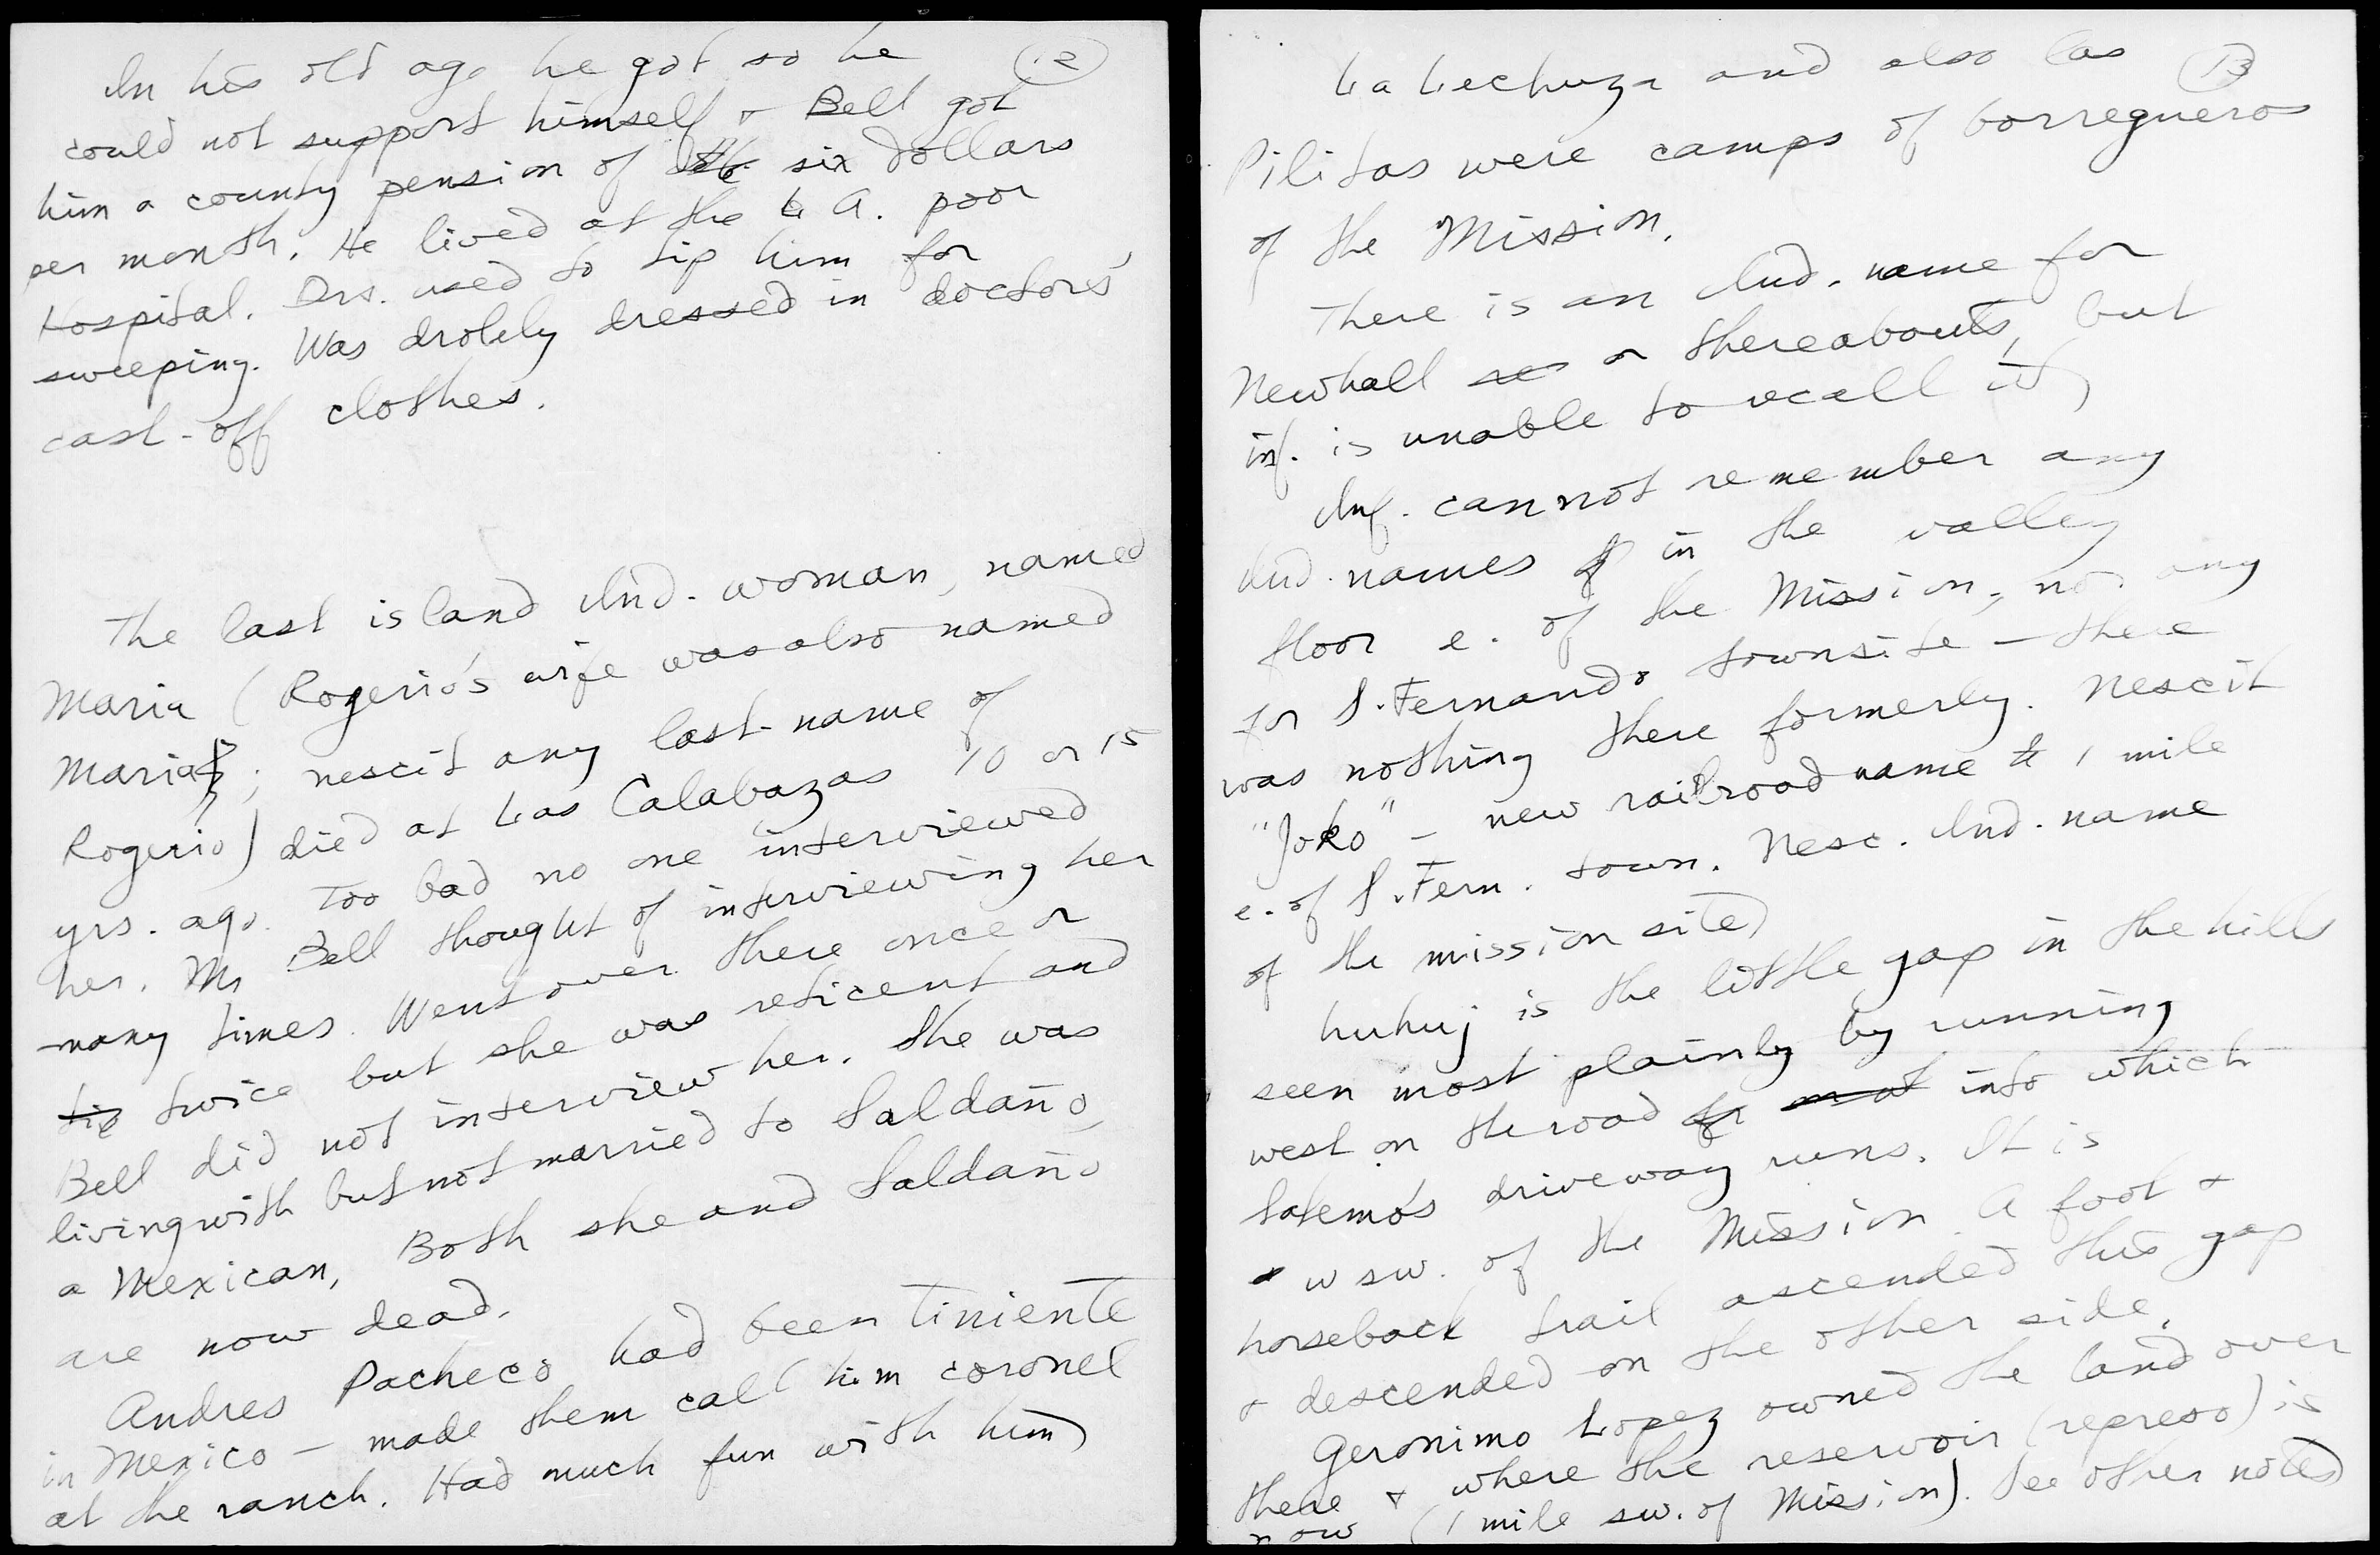 12
In his old age he got so he
could not support himself + Bell got
him a county pension of six dollars
per month. He lived at the L A. poor
Hospital. Drs. used to tip him for
sweeping. Was drolely dressed in doctors'
cast-off clothes.
The last island Ind. woman, named
Maria (Rogerio's wife was also named
Maria; nescit any last name of
Rogerio) died at Las Calabazas 10 or 15
yrs. ago. Too bad no one interviewed
her. Mr Bell thought of interviewing her
many times. Went over there once or
twice but she was reticent and
Bell did not interview her. She was
living with but not married to Saldaño,
a Mexican. Both she and Saldaño
are now dead.
Andres Pacheco had been Tiniente
in Mexico — made them call him coronel
at the ranch. Had much fun with him
13
La Lechuza and also Las
Pilitas were camps of borregueros
of the Mission.
There is an Ind. name for
Newhall or thereabouts, but
inf. is unable to recall it
Inf. cannot remember any
Ind. names in the valley
floor e. of the Mission, nor any
for S. Fernando townsite — there
was nothing there formerly. Nescit
"Joko" — new railroad name 1 mile
e. of S. Fern. town. Nesc. Ind. name
of the mission site
huhuj is the little gap in the hills
seen most plainly by running
west on the road into which
Salemo's driveway runs. It is
w sw. of the Mission. A foot +
horseback trail ascended this gap
+ descended on the other side.
Geronimo Lopez owned the land over
there + where the reservoir (represo) is
now (1 mile sw. of Mission). See other notes